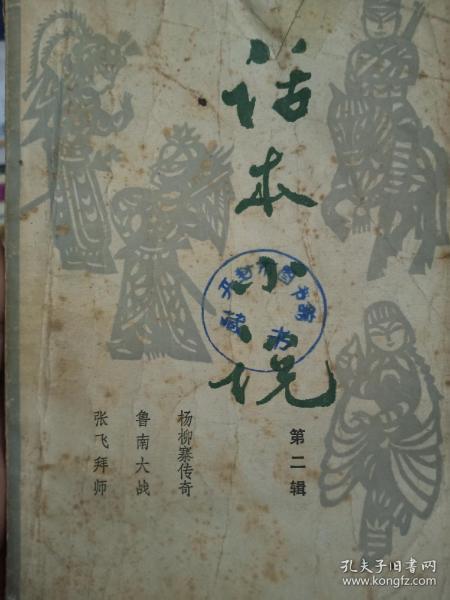 话本小说
第二辑
杨柳寨传奇
鲁南大战
张飞拜师
图书馆
藏书
孔夫子旧书网
www.kongfz.com